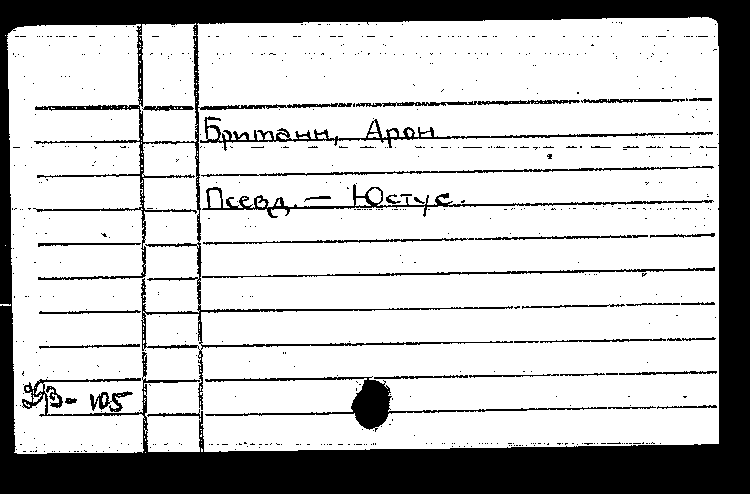 Британн, Арон
Псевд. — Юстус.
105